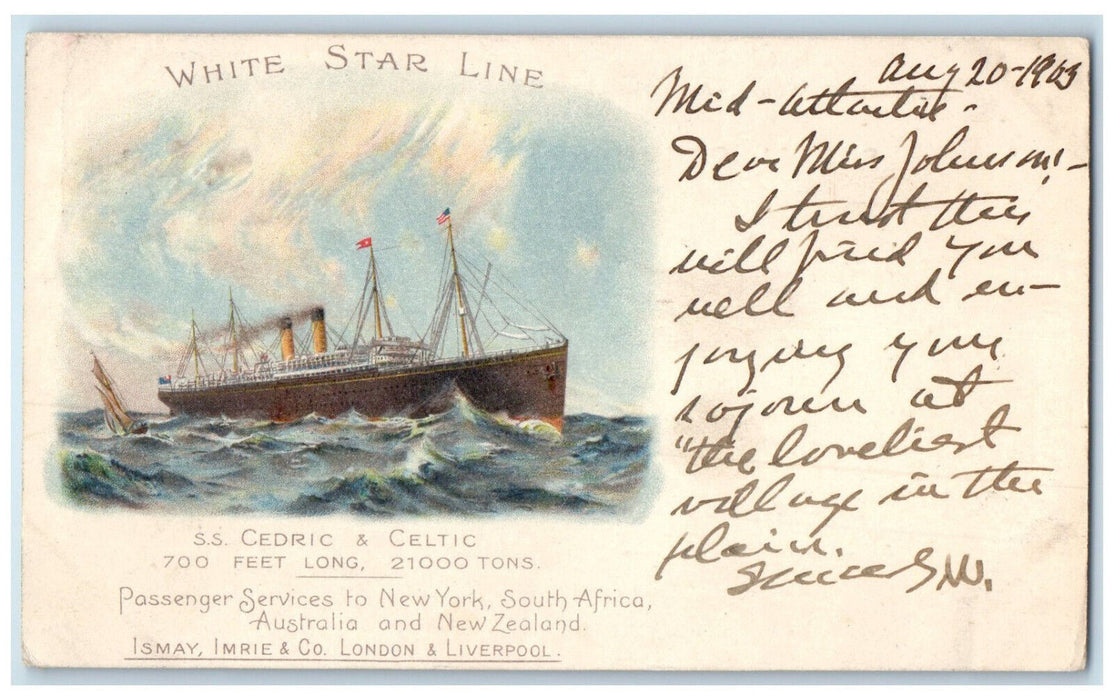 WHITE STAR LINE
S.S. CEDRIC & CELTIC
700 FEET LONG, 21000 TONS.
Passenger Services to New York, South Africa,
Australia and New Zealand.
ISMAY, IMRIE & CO. LONDON & LIVERPOOL.
Aug 20-1903
Mid-Atlantic.
Dear Miss Johnson:-
I trust this
will find you
well and en-
joying your
sojourn at
"the loveliest
village in the
plain.
W.